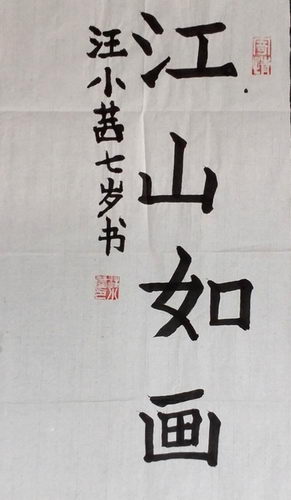 江山如画
汪小茜七岁书